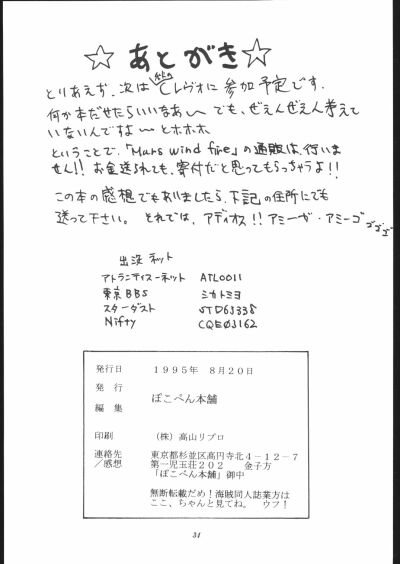 ☆ あとがき ☆
とりあえず、次はCレヴォに参加予定です。
何か本だせたらいいなあ〜 でも、ぜえんぜえん考えて
いないんですよ〜 とホホホ
ということで、「Mars wind fire」の通販は、行いま
せん!! お金送られても、寄付だと思ってもらっちゃうよ!!
この本の感想でもありましたら、下記の住所にでも
送って下さい。 それでは、アディオス!! アミーガ・アミーゴ ゴゴゴ
出没ネット
アトランティスーネット ATL0011
東京BBS ミカトミヨ
スターダスト STD63338
Nifty CQE03162
発行日 1995年 8月20日
発行
編集 ぽこぺん本舗
印刷 (株)高山リプロ
連絡先 東京都杉並区高円寺北4-12-7
/感想 第一児玉荘202 金子方
「ぽこぺん本舗」御中
無断転載だめ!海賊同人誌業方は
ここ、ちゃんと見てね。 ウフ!
31